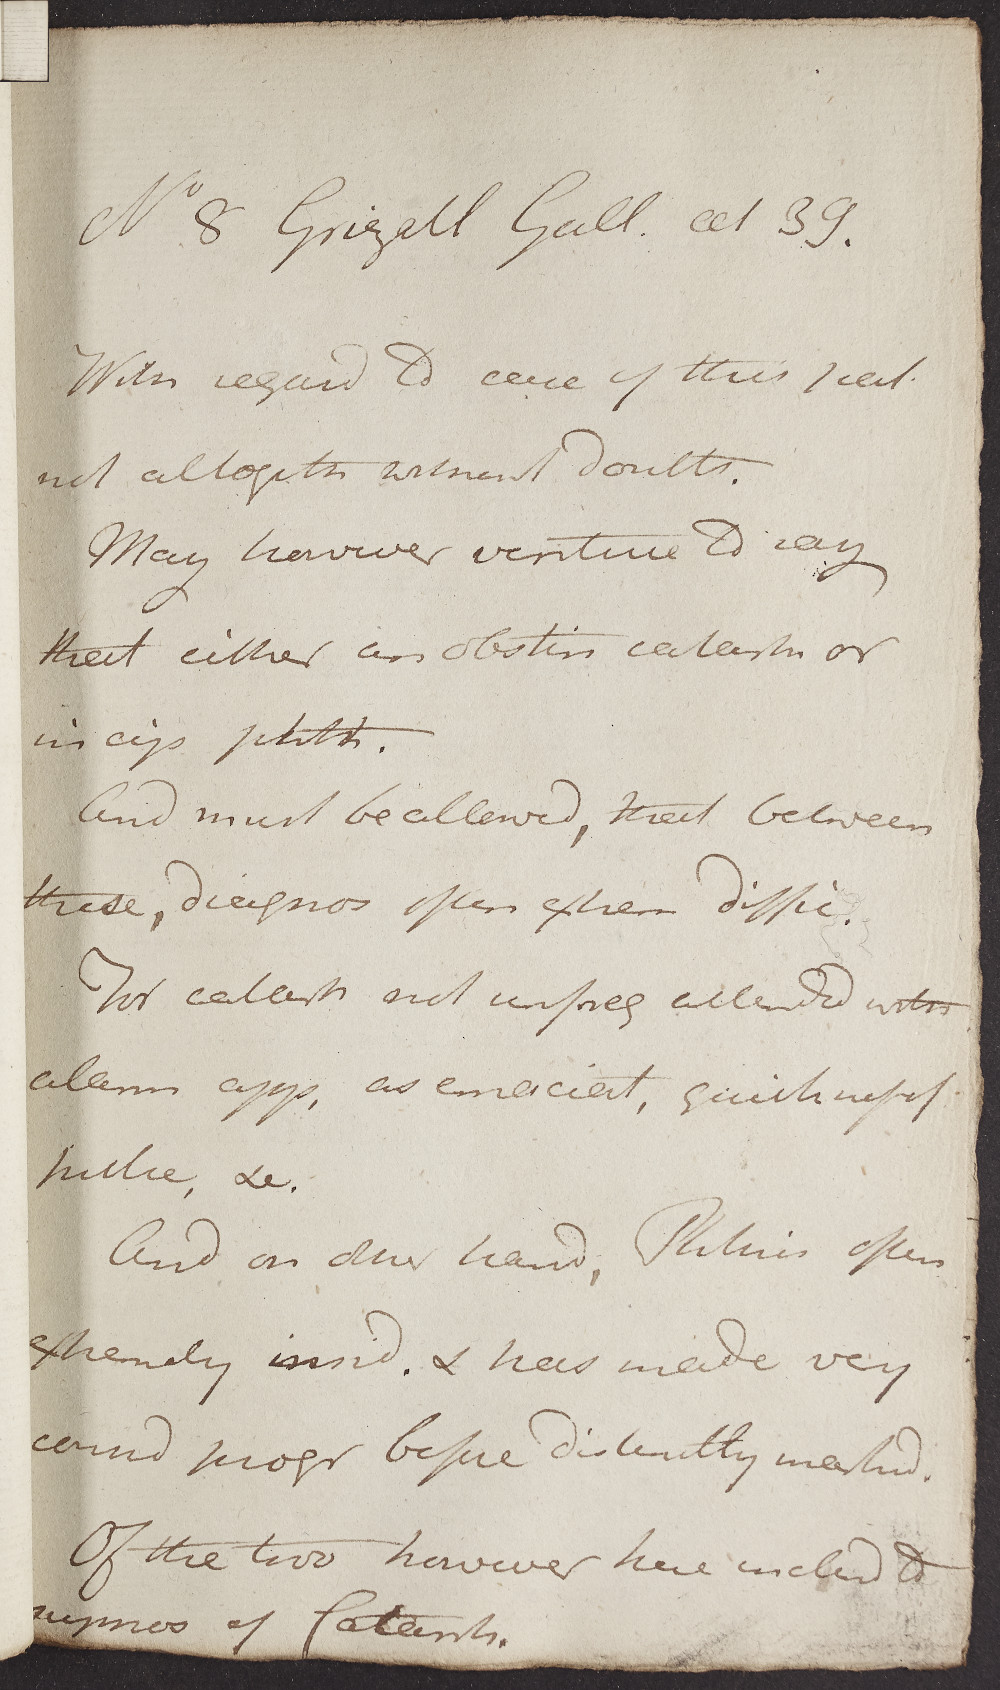 No 8 Grizall Gall. aet 39.
With regard to case of this pat.
not altogeth without doubts.
May however venture to say
that either an obstin catarrh or
incip phth.
And must be allowed, that between
these, diagnos often extrem diffic.
For catarrh not unfreq attended with
alarm app, as emaciat, quickness of
pulse, &c.
And on other hand, Phthisis often
extremely insid. & has made very
consid progr before distinctly marked.
Of the two however here inclind to
suppose of Catarrh.